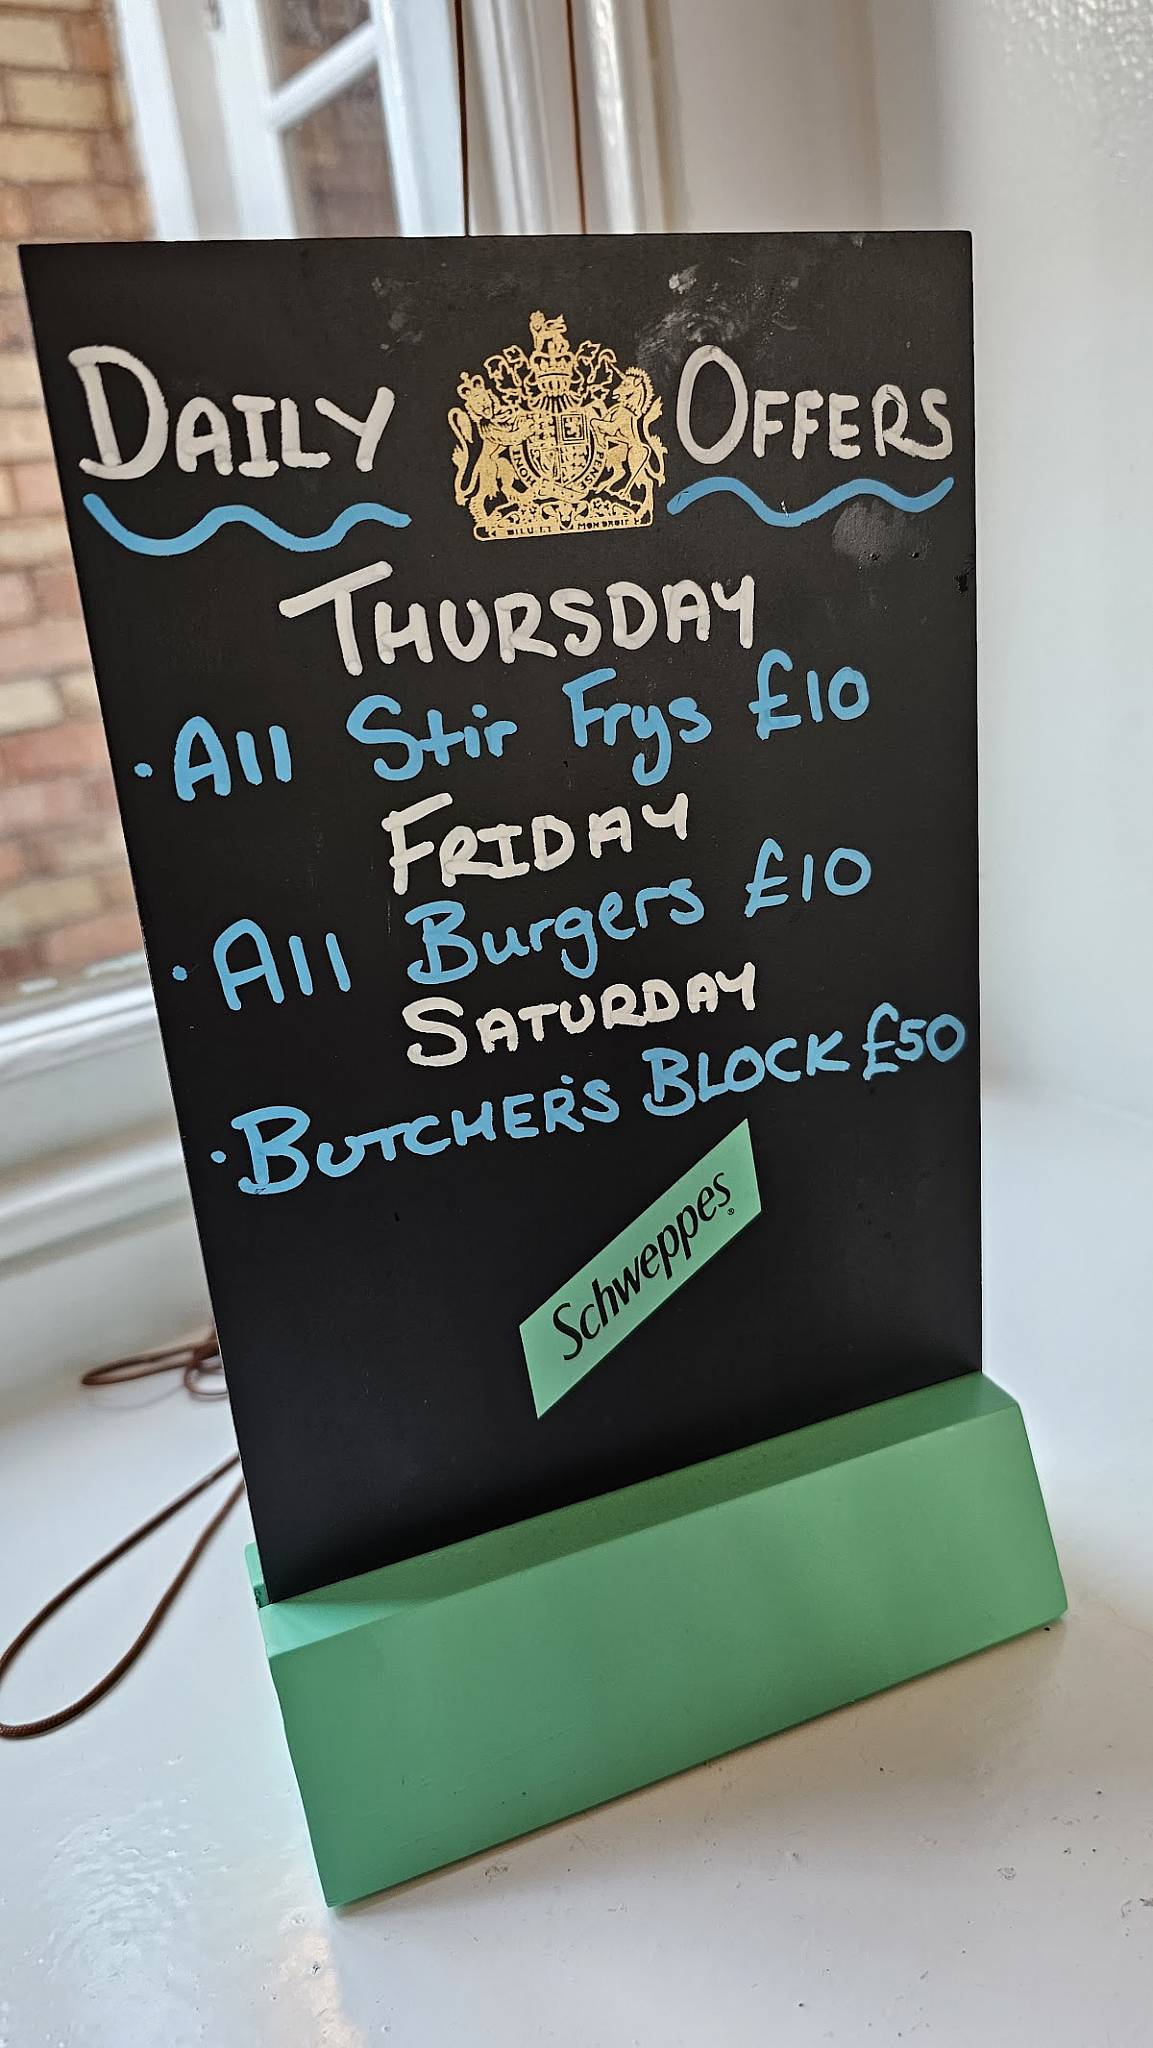 DAILY OFFERS
THURSDAY
· All Stir Frys £10
FRIDAY
· All Burgers £10
SATURDAY
· BUTCHER'S BLOCK £50
Schweppes®